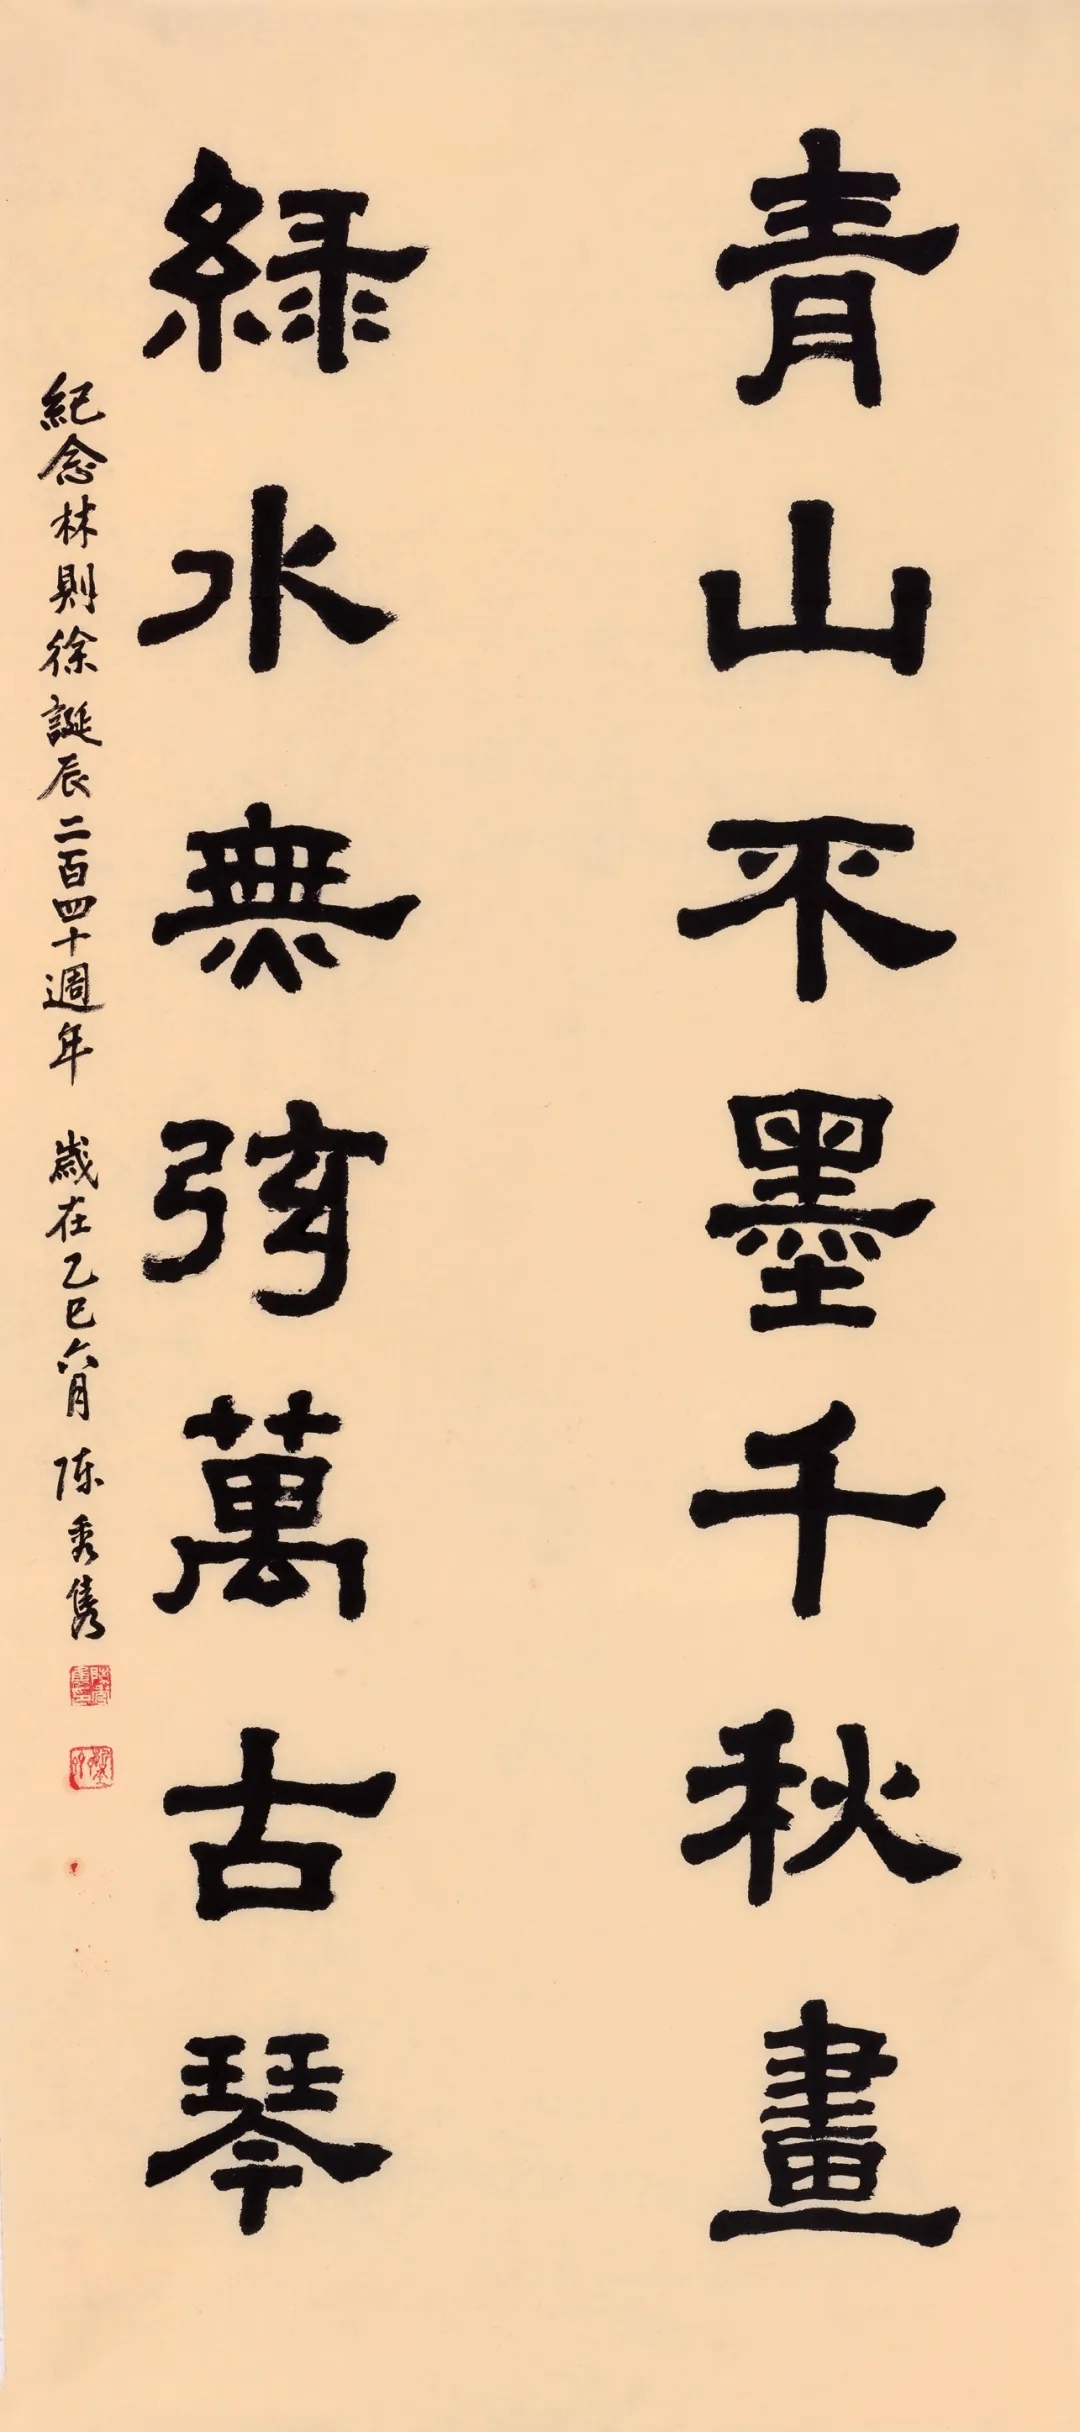 青山不墨千秋畫
綠水無弦萬古琴
紀念林則徐誕辰二百四十週年 歲在乙巳六月 陈秀雋